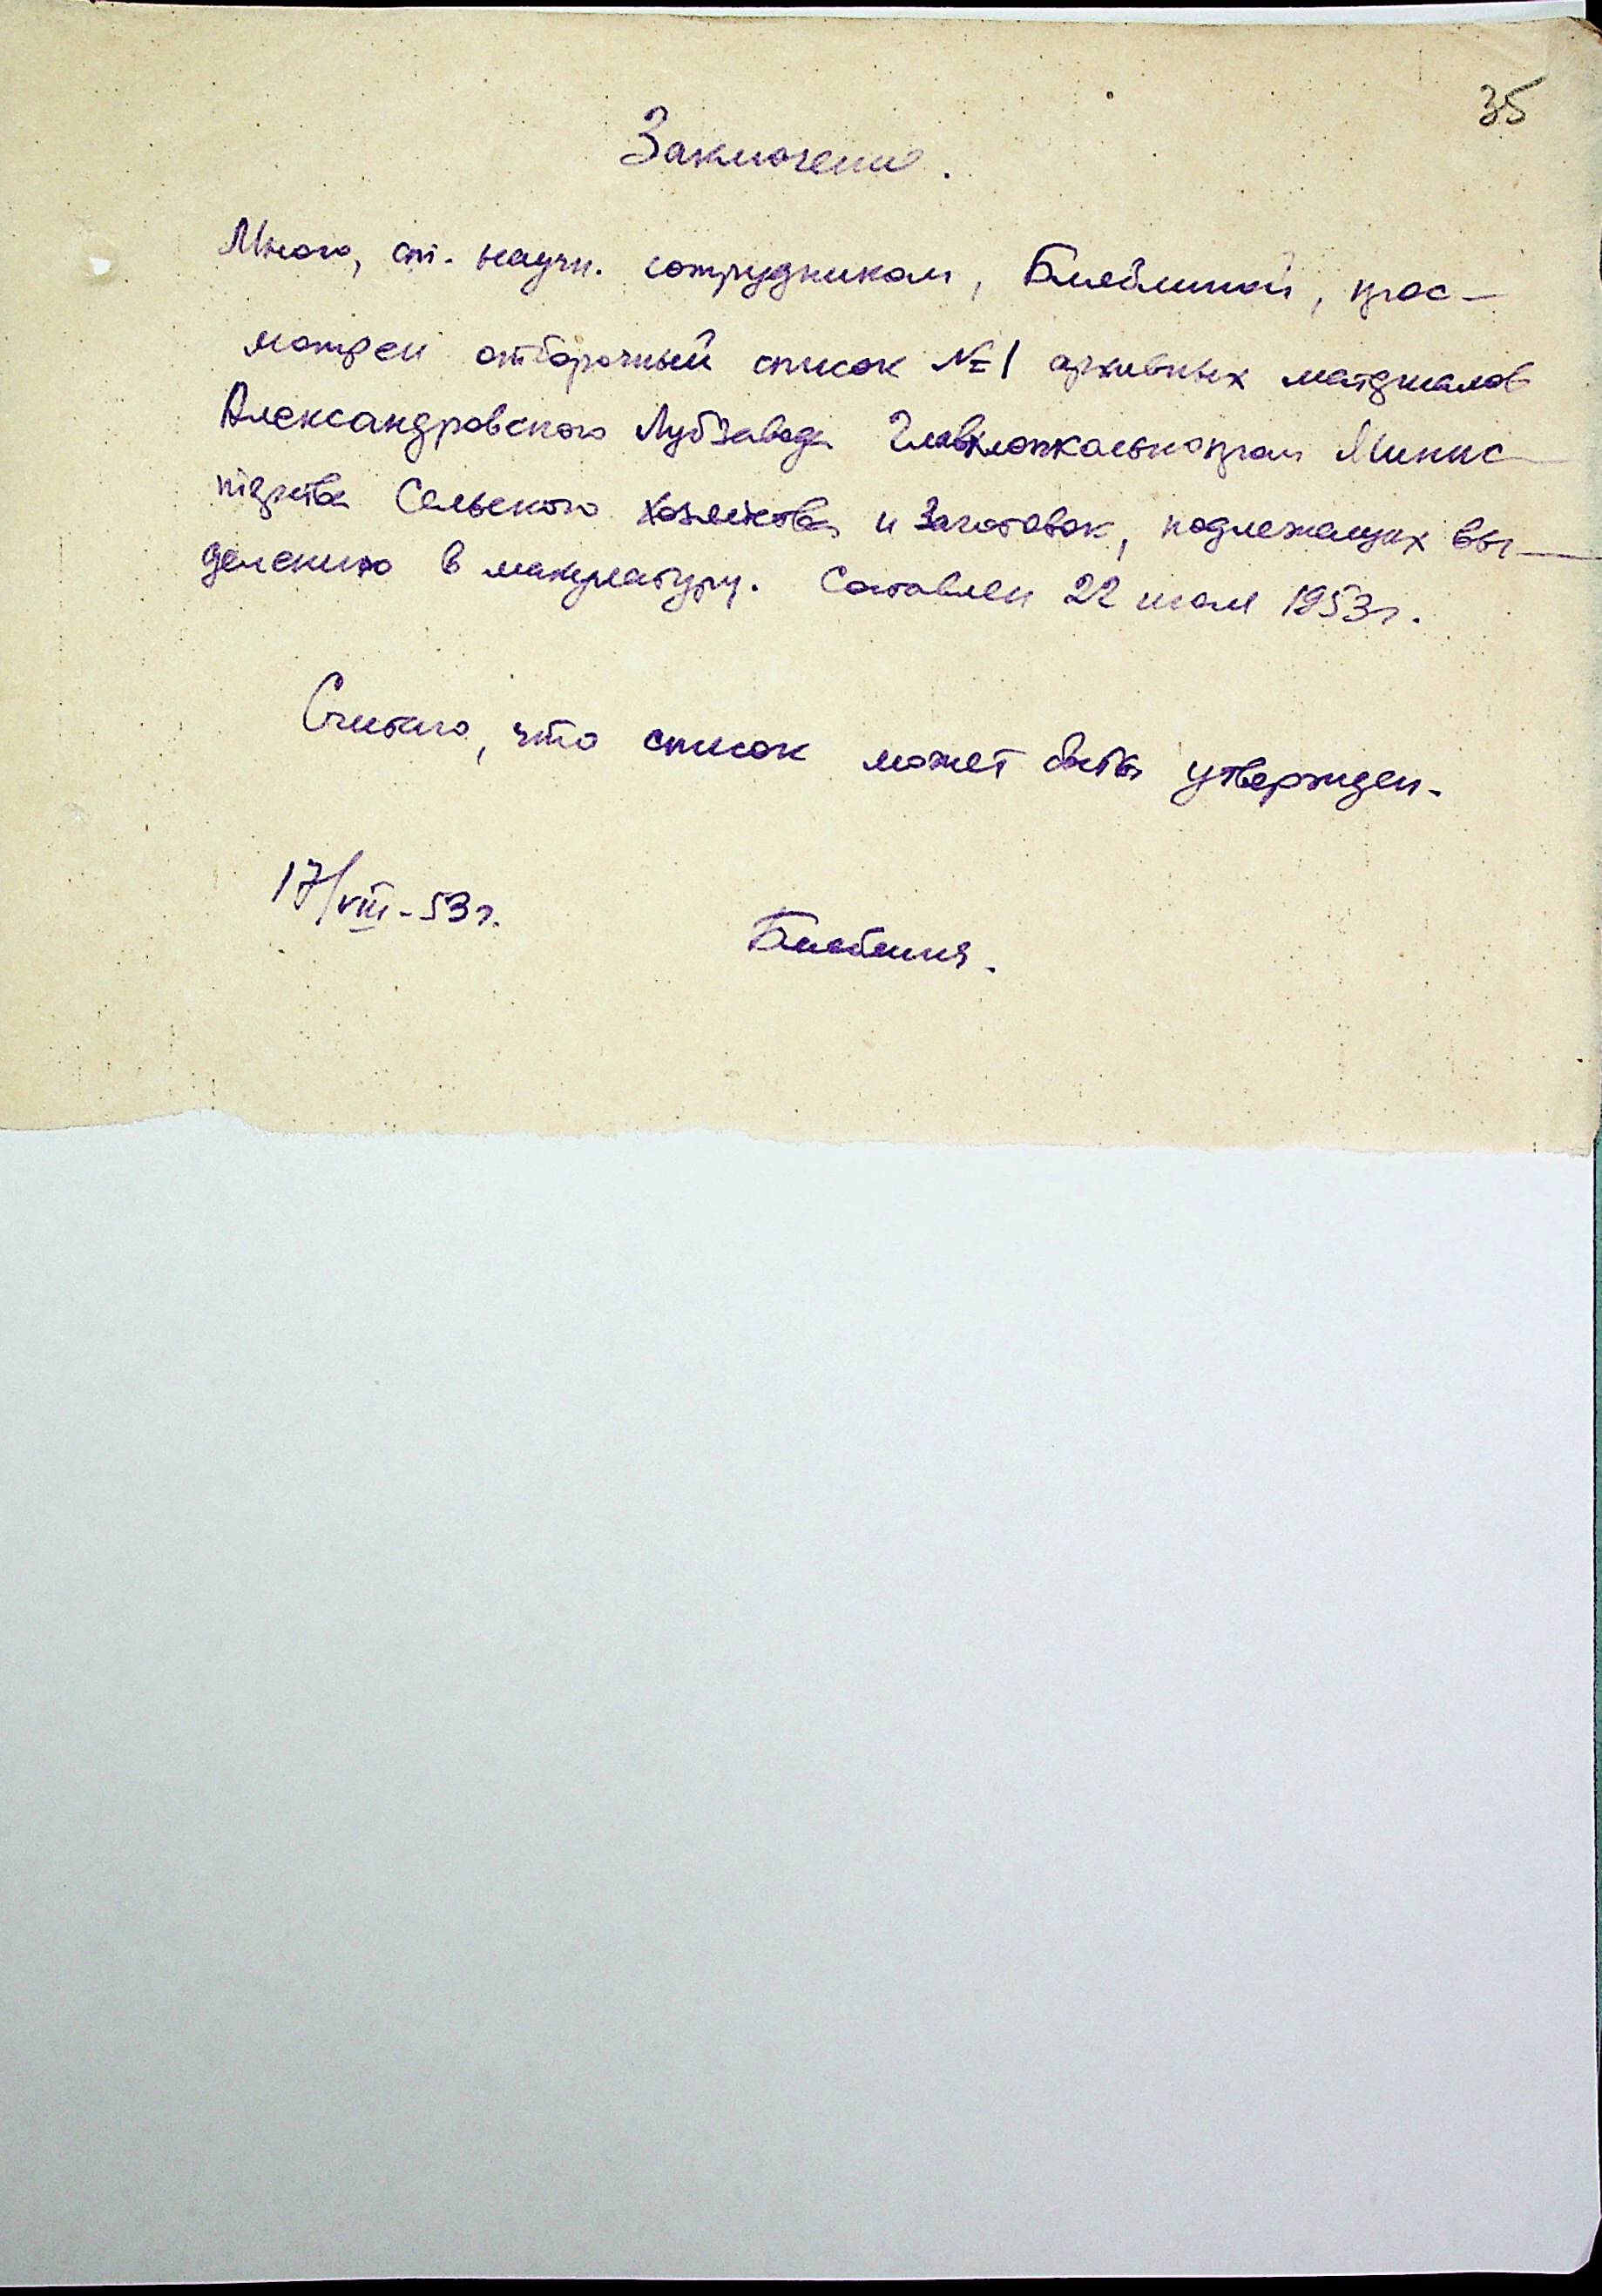 35
Заключение.
Мною, ст. научн. сотрудником, прос-
мотрен отборочный список №1 архивных материалов
Александровского Лубзавода Минис-
терства Сельского хозяйства и Заготовок, подлежащих вы-
делению в макулатуру. Составлен 22 июля 1953г.
Считаю, что список может быть утвержден.
17/VIII-53г.